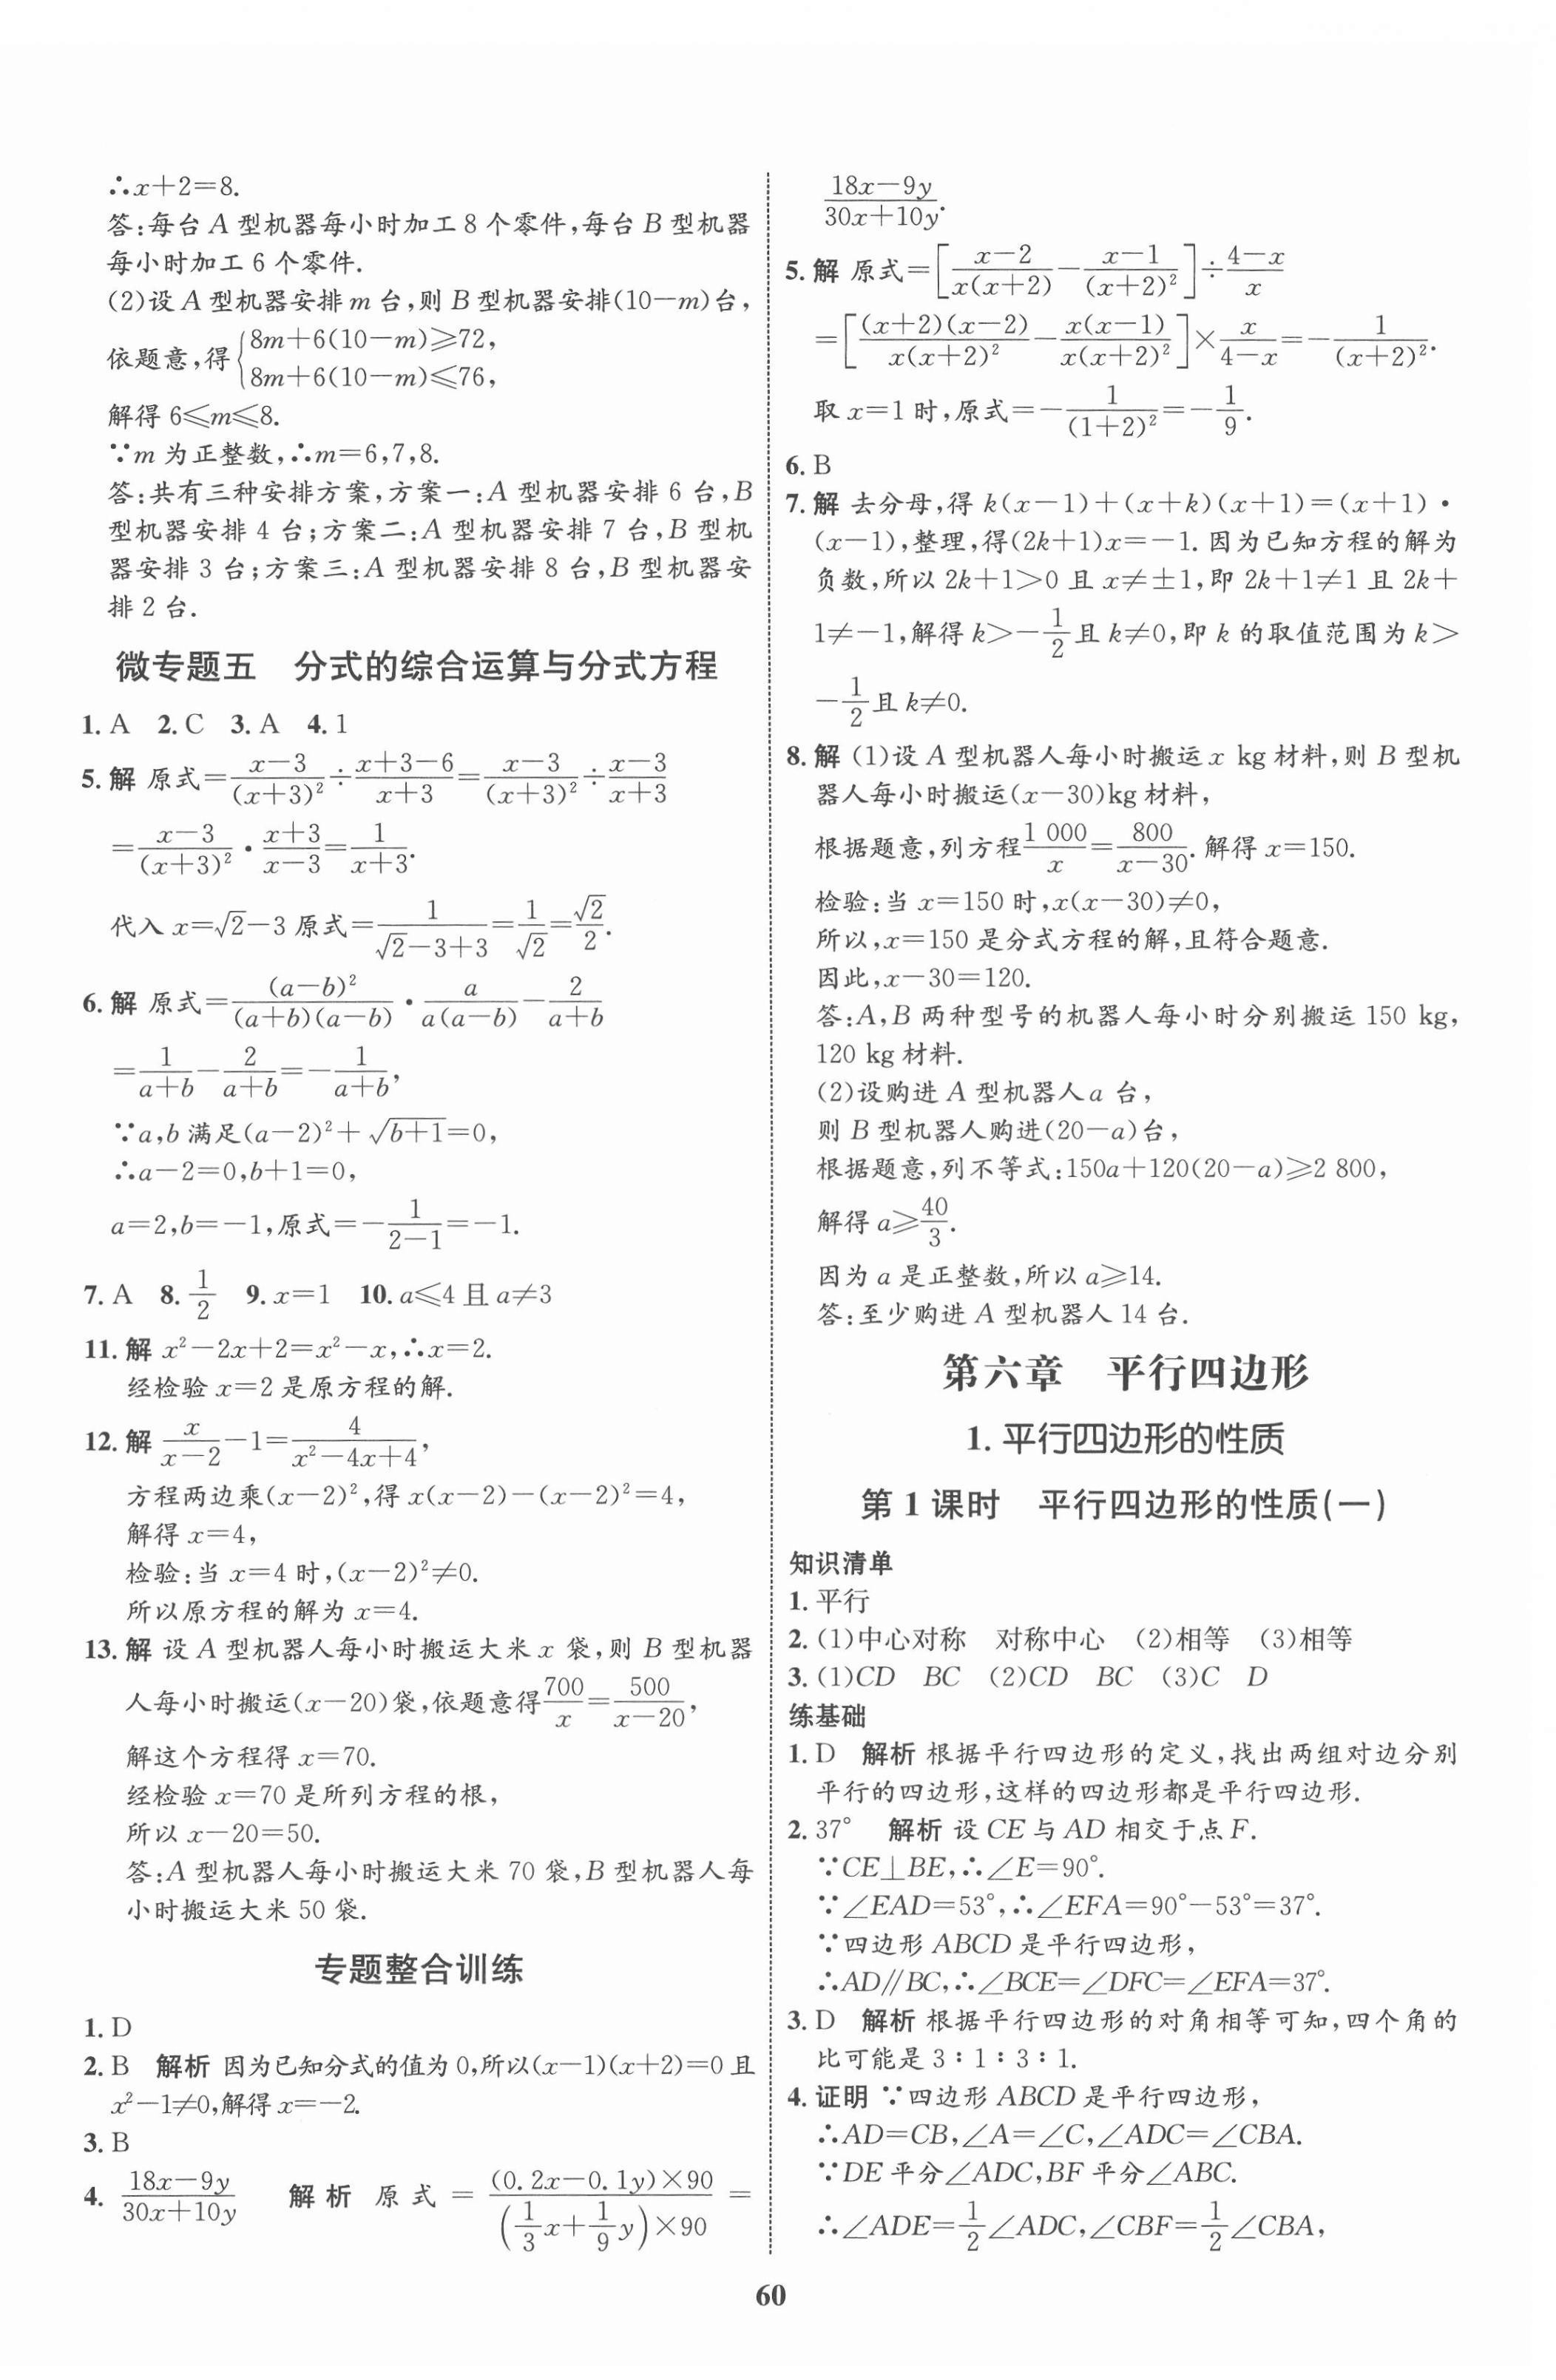 ∴x+2=8.
答:每台 A 型机器每小时加工8个零件,每台 B 型机器
每小时加工 6 个零件.
(2)设 A 型机器安排 m 台,则 B 型机器安排(10−m)台,
依题意,得{8m+6(10−m)≥72,
8m+6(10−m)≤76,
解得 6≤m≤8.
∵m 为正整数,∴m=6,7,8.
答:共有三种安排方案,方案一:A 型机器安排 6 台,B
型机器安排 4 台;方案二:A 型机器安排 7 台,B 型机
器安排 3 台;方案三:A 型机器安排 8 台,B 型机器安
排 2 台.
微专题五　分式的综合运算与分式方程
1. A　2. C　3. A　4. 1
5. 解 原式=(x−3)/(x+3)²÷(x+3−6)/(x+3)=(x−3)/(x+3)²÷(x−3)/(x+3)
=(x−3)/(x+3)²·(x+3)/(x−3)=1/(x+3).
代入 x=√2−3 原式=1/(√2−3+3)=1/√2=√2/2.
6. 解 原式=(a−b)²/((a+b)(a−b))·a/(a(a−b))−2/(a+b)
=1/(a+b)−2/(a+b)=−1/(a+b),
∵a,b 满足(a−2)²+√(b+1)=0,
∴a−2=0,b+1=0,
a=2,b=−1,原式=−1/(2−1)=−1.
7. A　8. 1/2　9. x=1　10. a≤4 且 a≠3
11. 解 x²−2x+2=x²−x,∴x=2.
经检验 x=2 是原方程的解.
12. 解 x/(x−2)−1=4/(x²−4x+4),
方程两边乘(x−2)²,得 x(x−2)−(x−2)²=4,
解得 x=4,
检验:当 x=4 时,(x−2)²≠0.
所以原方程的解为 x=4.
13. 解 设 A 型机器人每小时搬运大米 x 袋,则 B 型机器
人每小时搬运(x−20)袋,依题意得700/x=500/(x−20),
解这个方程得 x=70.
经检验 x=70 是所列方程的根,
所以 x−20=50.
答:A 型机器人每小时搬运大米 70 袋,B 型机器人每
小时搬运大米 50 袋.
专题整合训练
1. D
2. B　解析 因为已知分式的值为 0,所以(x−1)(x+2)=0 且
x²−1≠0,解得 x=−2.
3. B
4. (18x−9y)/(30x+10y)　解析 原式=((0.2x−0.1y)×90)/((1/3x+1/9y)×90)=
(18x−9y)/(30x+10y).
5. 解 原式=[(x−2)/(x(x+2))−(x−1)/(x+2)²]÷(4−x)/x
=[((x+2)(x−2))/(x(x+2)²)−(x(x−1))/(x(x+2)²)]×x/(4−x)=−1/(x+2)².
取 x=1 时,原式=−1/(1+2)²=−1/9.
6. B
7. 解 去分母,得 k(x−1)+(x+k)(x+1)=(x+1)·
(x−1),整理,得(2k+1)x=−1. 因为已知方程的解为
负数,所以 2k+1>0 且 x≠±1,即 2k+1≠1 且 2k+
1≠−1,解得 k>−1/2且 k≠0,即 k 的取值范围为 k>
−1/2且 k≠0.
8. 解 (1)设 A 型机器人每小时搬运 x kg 材料,则 B 型机
器人每小时搬运(x−30)kg 材料,
根据题意,列方程1 000/x=800/(x−30). 解得 x=150.
检验:当 x=150 时,x(x−30)≠0,
所以,x=150 是分式方程的解,且符合题意.
因此,x−30=120.
答:A,B 两种型号的机器人每小时分别搬运 150 kg,
120 kg 材料.
(2)设购进 A 型机器人 a 台,
则 B 型机器人购进(20−a)台,
根据题意,列不等式:150a+120(20−a)≥2 800,
解得 a≥40/3.
因为 a 是正整数,所以 a≥14.
答:至少购进 A 型机器人 14 台.
第六章　平行四边形
1. 平行四边形的性质
第 1 课时　平行四边形的性质(一)
知识清单
1. 平行
2. (1)中心对称　对称中心　(2)相等　(3)相等
3. (1)CD　BC　(2)CD　BC　(3)C　D
练基础
1. D　解析 根据平行四边形的定义,找出两组对边分别
平行的四边形,这样的四边形都是平行四边形.
2. 37°　解析 设 CE 与 AD 相交于点 F.
∵CE⊥BE,∴∠E=90°.
∵∠EAD=53°,∴∠EFA=90°−53°=37°.
∵四边形 ABCD 是平行四边形,
∴AD∥BC,∴∠BCE=∠DFC=∠EFA=37°.
3. D　解析 根据平行四边形的对角相等可知,四个角的
比可能是 3∶1∶3∶1.
4. 证明 ∵四边形 ABCD 是平行四边形,
∴AD=CB,∠A=∠C,∠ADC=∠CBA.
∵DE 平分∠ADC,BF 平分∠ABC.
∴∠ADE=1/2∠ADC,∠CBF=1/2∠CBA,
60